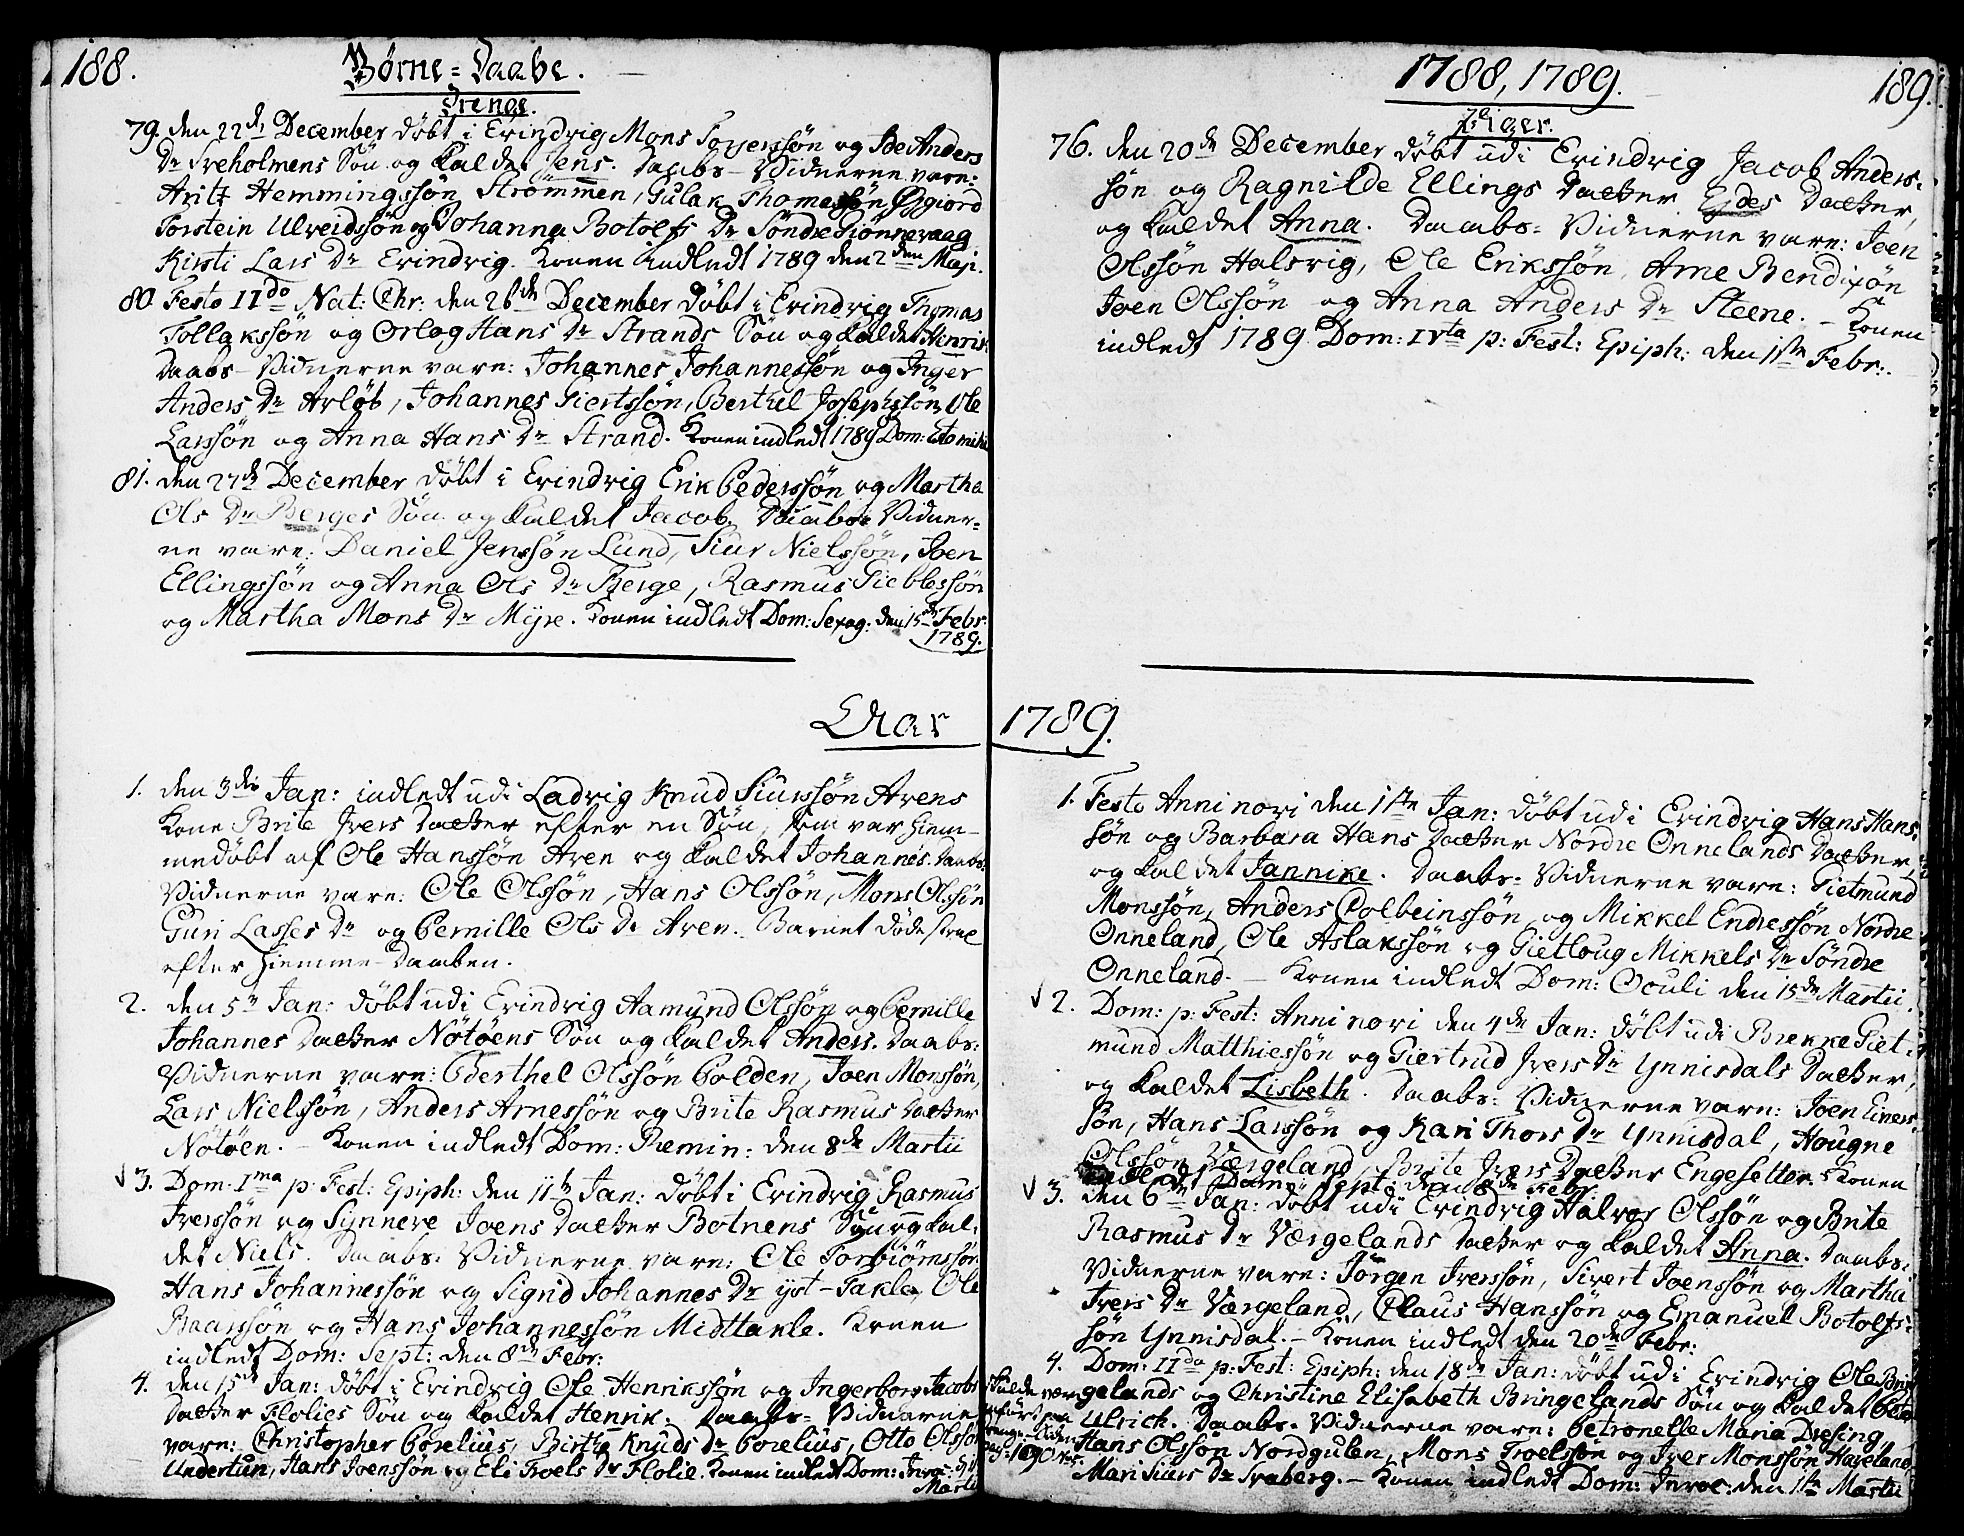 188.
Børne-Daabe.
Drenge.
79. den 22de December døbt i Evindvig Mons Torgerssøn og Anders
Dr Sveholmens Søn og kaldet Jens. Daabs-Vidnerne vare:
Aritz Hemmingssøn Strømmen, Gulak Thomassøn Øygiord
Torstein Ulveidssøn og Johanna Botolfs Dr Søndre Giønnevaag
Kirsti Lars Dr Evindvig. Konen indledt 1789 den 2den Maji.
80. Festo IIdo Nat: Chr: den 26de December døbt i Evindvig Thomas
Tollakssøn og Orlog Hans Dr Strands Søn og kaldet Henrik.
Daabs-Vidnerne vare: Johannes Johannessøn og Inger
Anders Dr Arløb, Johannes Giertssøn, Berthel Josephssøn, Ole
Larssøn og Anna Hans Dr Strand. Konen indledt 1789 Dom: Esto mihi
81. den 27de December døbt i Evindvig Erik Pederssøn og Martha
Ols Dr Berges Søn og kaldet Jacob. Daabs-Vidner-
ne vare: Daniel Jenssøn Lund, Siur Nielssøn, Joen
Ellingssøn og Anna Ols Dr Berge, Rasmus Gieblessøn
og Martha Mons Dr Mijre. Konen indledt Dom: Sexag: den 15de Febr.
1789.
Aar
1. den 3die Jan: indledt udi Ladvig Knud Siurssøn Arens
Kone Brite Ivers Datter efter en Søn, som var hiem-
medøbt af Ole Hanssøn Aren og kaldet Johannes. Daabs-
Vidnerne vare: Ole Olssøn, Hans Olssøn, Mons Olssøn
Guri Lasses Dr og Pernille Ols Dr Aren. Barnet døde strax
efter Hiemme-Daaben.
2. den 5te Jan: døbt udi Evindvig Aamund Olssøn og Pernille
Johannes Datter Nötöens Søn og kaldet Anders. Daabs-
Vidnerne vare: Berthel Olssøn Polden, Joen Monssøn,
Lars Nielssøn, Anders Arnessøn og Brite Rasmus Datter
Nötöen. - Konen indledt Dom: Remin: den 8de Martii
3. Dom. Ima p. Fest: Epiph: den 11te Jan: døbt i Evindvig Rasmus
Iverssøn og Synneve Joens Datter Botnens Søn og kal-
det Niels. Daabs-Vidnerne vare: Ole Torbiørnssøn
Hans Johannessøn og Sigrid Johannes Dr yst-Takle, Ole
Baarssøn og Hans Johannessøn Midttakle. Konen
indledt Dom: Sept: den 8de Febr:
4. den 15de Jan: døbt i Evindvig Ole Henrikssøn og Ingerborg Jacobs
Datter Flolies Søn og kaldet Henrik. Daabs-Vidnerne
vare: Christopher Coselius, Birthe Knuds Dr Coselius, Otto Olssøn
Undertun, Hans Joenssøn og Eli Troels Dr Flolie. Konen indledt Dom: Invoc:
Martii
1788, 1789.
189.
Piger.
76. den 20de December døbt udi Evindvig Jacob Anders-
søn og Ragnilde Ellings Datter Eides Datter,
og kaldet Anna. Daabs-Vidnerne vare: Joen
Olssøn Halsvig, Ole Erikssøn, Arne Bendixøn
Joen Olssøn og Anna Anders Dr Steene. - Konen
indledt 1789 Dom: IVta p: Fest: Epiph: den 1ste Febr:
1789.
1. Festo Anni novi den 1ste Jan: døbt udi Evindvig Hans Hans-
søn og Barbara Hans Datter Nordre Onnelands Datter,
og kaldet Jannike. Daabs-Vidnerne vare: Gietmund
Monssøn, Anders Colbeinssøn, og Mikkel Endressøn Nordre
Onneland, Ole Aslakssøn og Gietloug Mikkels Dr Søndre
Onneland. - Konen indledt Dom: Oculi den 15de Martii.
2. Dom: p: Fest: Anni novi den 4de Jan: døbt udi Brekke Giet-
mund Matthiessøn og Giertrud Ivers Dr Ynnisdals Datter,
og kaldet Lisbeth. Daabs-Vidnerne vare: Joen Einers-
søn, Hans Larssøn og Kari Thors Dr Ynnisdal, Hougne
OlssønVærgeland, Brite Ivers Datter Engesetter. Konen
indledt Dom: Sept: den 8de Febr.
3. den 6te Jan: døbt udi Evindvig Halvor Olssøn og Brite
Rasmus Dr Værgelands Datter og kaldet Anna. Daabs-
Vidnerne vare: Jørgen Iverssøn, Sivert Joenssøn og Martha
Ivers Dr Værgeland, Claus Hanssøn og Emanuel Botolfs-
søn Ynnisdal. - Konen indledt den 20de Febr:
4. Dom: IIda p: Fest: Epiph: den 18de Jan: døbt udi Evindvig Ole Brin-
gelands og Christine Elisabeth Bringelands Søn og kaldet
Ulrich. Daabs-Vidnerne vare: Petronelle Maria Dresing,
Hans Olssøn Nordgulen, Mons Troelssøn og Iver Monssøn Haveland,
Mari Siurs Dr Svaberg. - Konen indledt Dom: Invoc: den 1ste Martii
skulde være
190